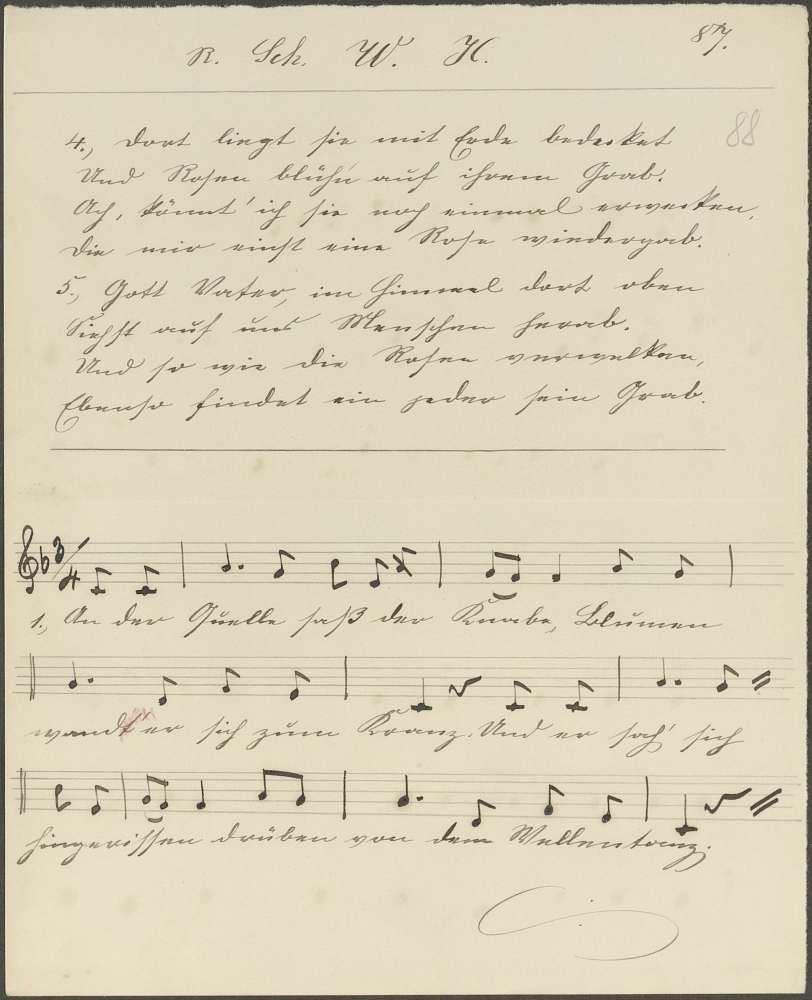 R. Sch. W. H.
87.
88
4., Dort liegt sie mit Erde bedecket
Und Rosen blühn auf ihrem Grab.
Ach, könnt' ich sie noch einmal erwecken,
Die mir einst eine Rose wiedergab.
5., Gott Vater, im Himmel dort oben
Siehst auf uns Menschen herab.
Und so wie die Rosen verwelken,
Ebenso findet ein jeder sein Grab.
3/4
1., An der Quelle saß der Knabe, Blumen
wandt er sich zum Kranz. Und er sah' sich
hingerissen drüben von dem Wellentanz.